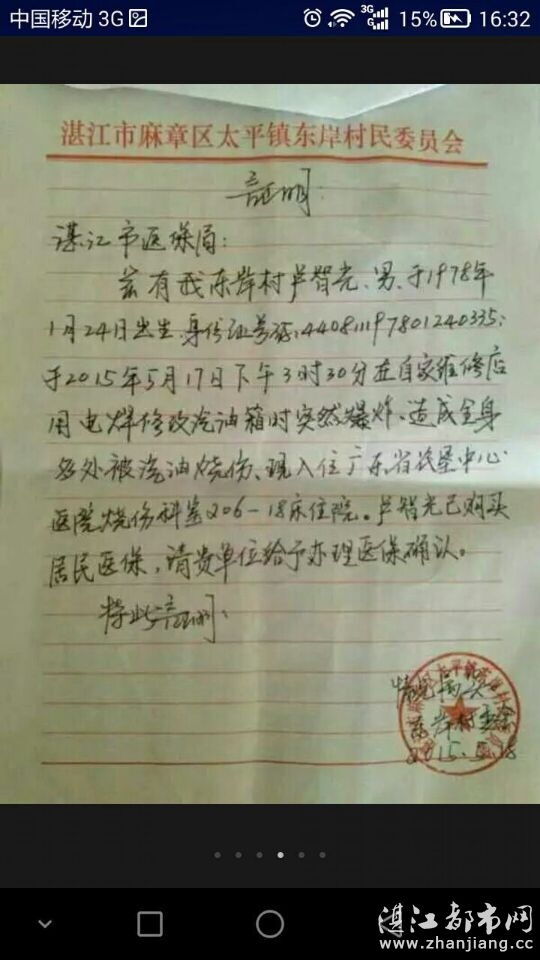 中国移动 3G
3G
G
15%
16:32
湛江市麻章区太平镇东岸村民委员会
证明:
湛江市医保局:
兹有我东岸村卢智光、男、于1978年
1月24日出生,身份证号码:440811197801240335;
于2015年5月17日下午3时30分在自家维修店
用电焊修改汽油箱时突然爆炸、造成全身
多处被汽油烧伤、现入住广东省农垦中心
医院烧伤科室206-18床住院。卢智光已购买
居民医保,请贵单位给予办理医保确认。
特此证明:
情况属实
东岸村委会
2015.5.18
湛江都市网
www.zhanjiang.cc